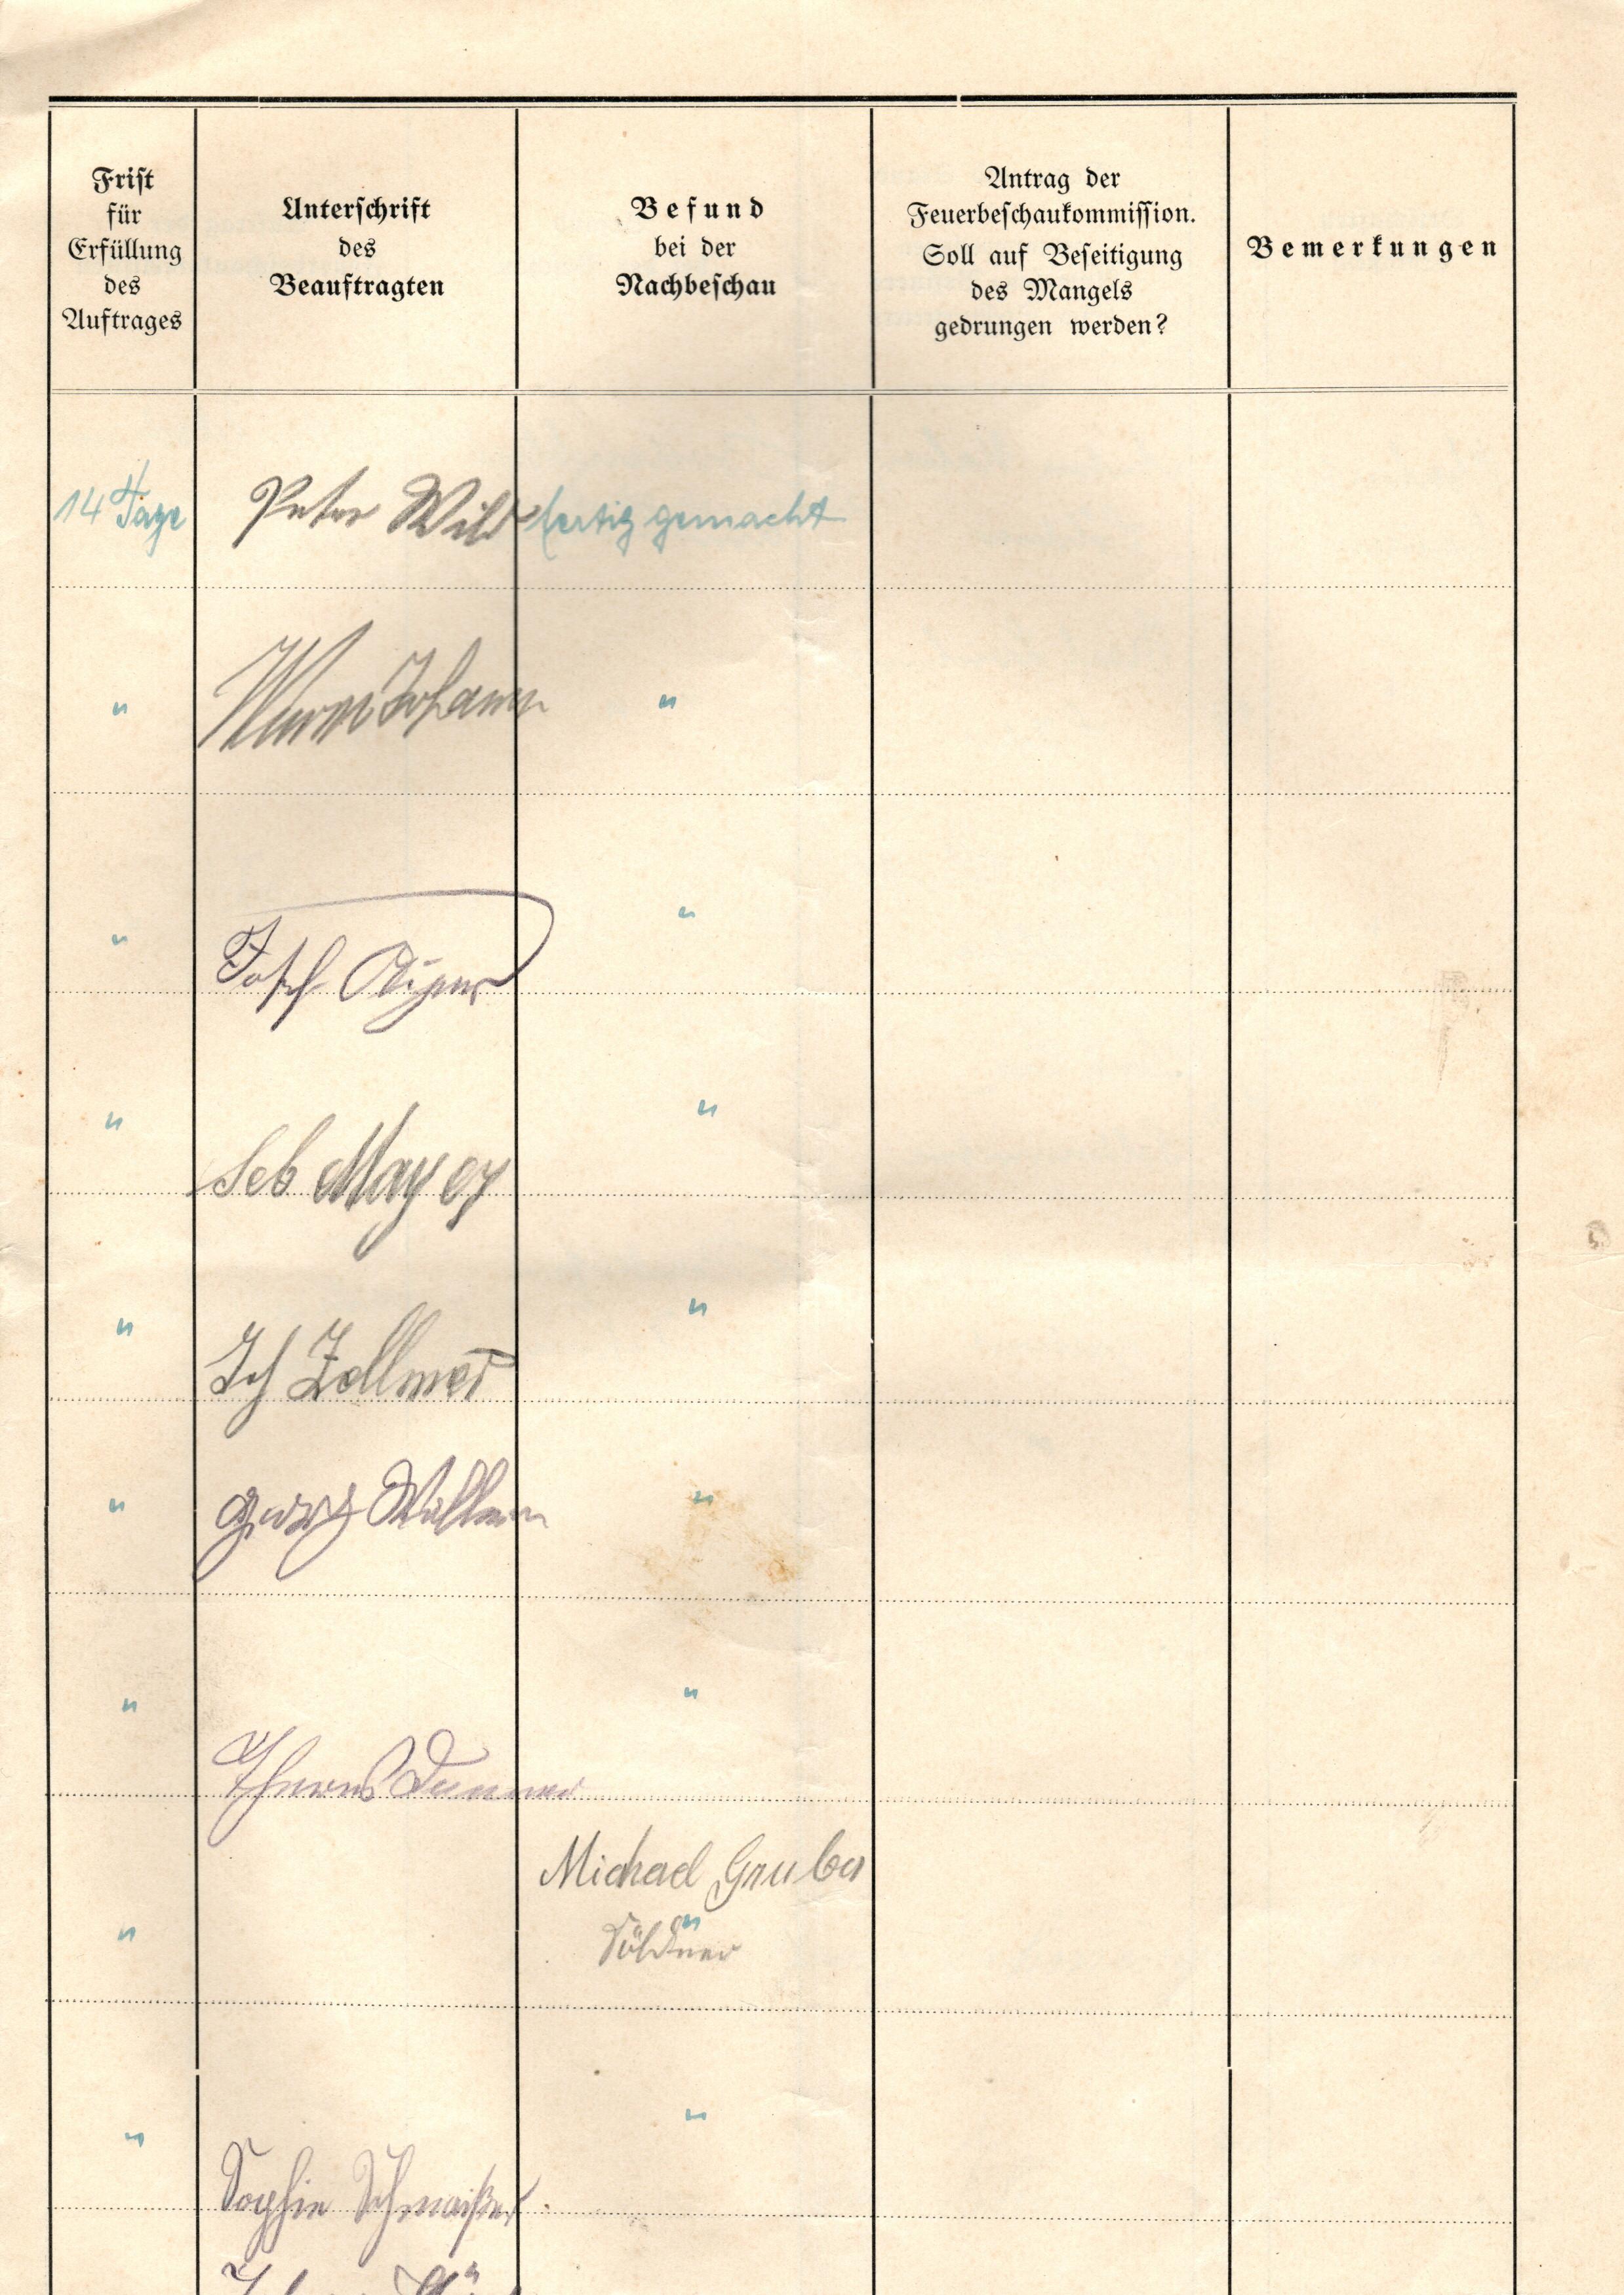 Frist
für
Erfüllung
des
Auftrages
Unterschrift
des
Beauftragten
Befund
bei der
Nachbeschau
Antrag der
Feuerbeschaukommission.
Soll auf Beseitigung
des Mangels
gedrungen werden?
Bemerkungen
14 Tage Peter Wild fertig gemacht
" Johann "
" Josef "
" Seb Mayer "
" Zollner "
" Georg "
" "
Michael Gruber
" "
Söldner
" "
Sophie